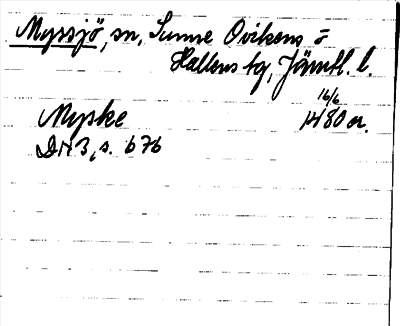 Myssjö, sn, Sunne Ovikens o
Hallens tg, Jämtl. l.
Myske 16/6 1480 or.
DN 3, s. 676